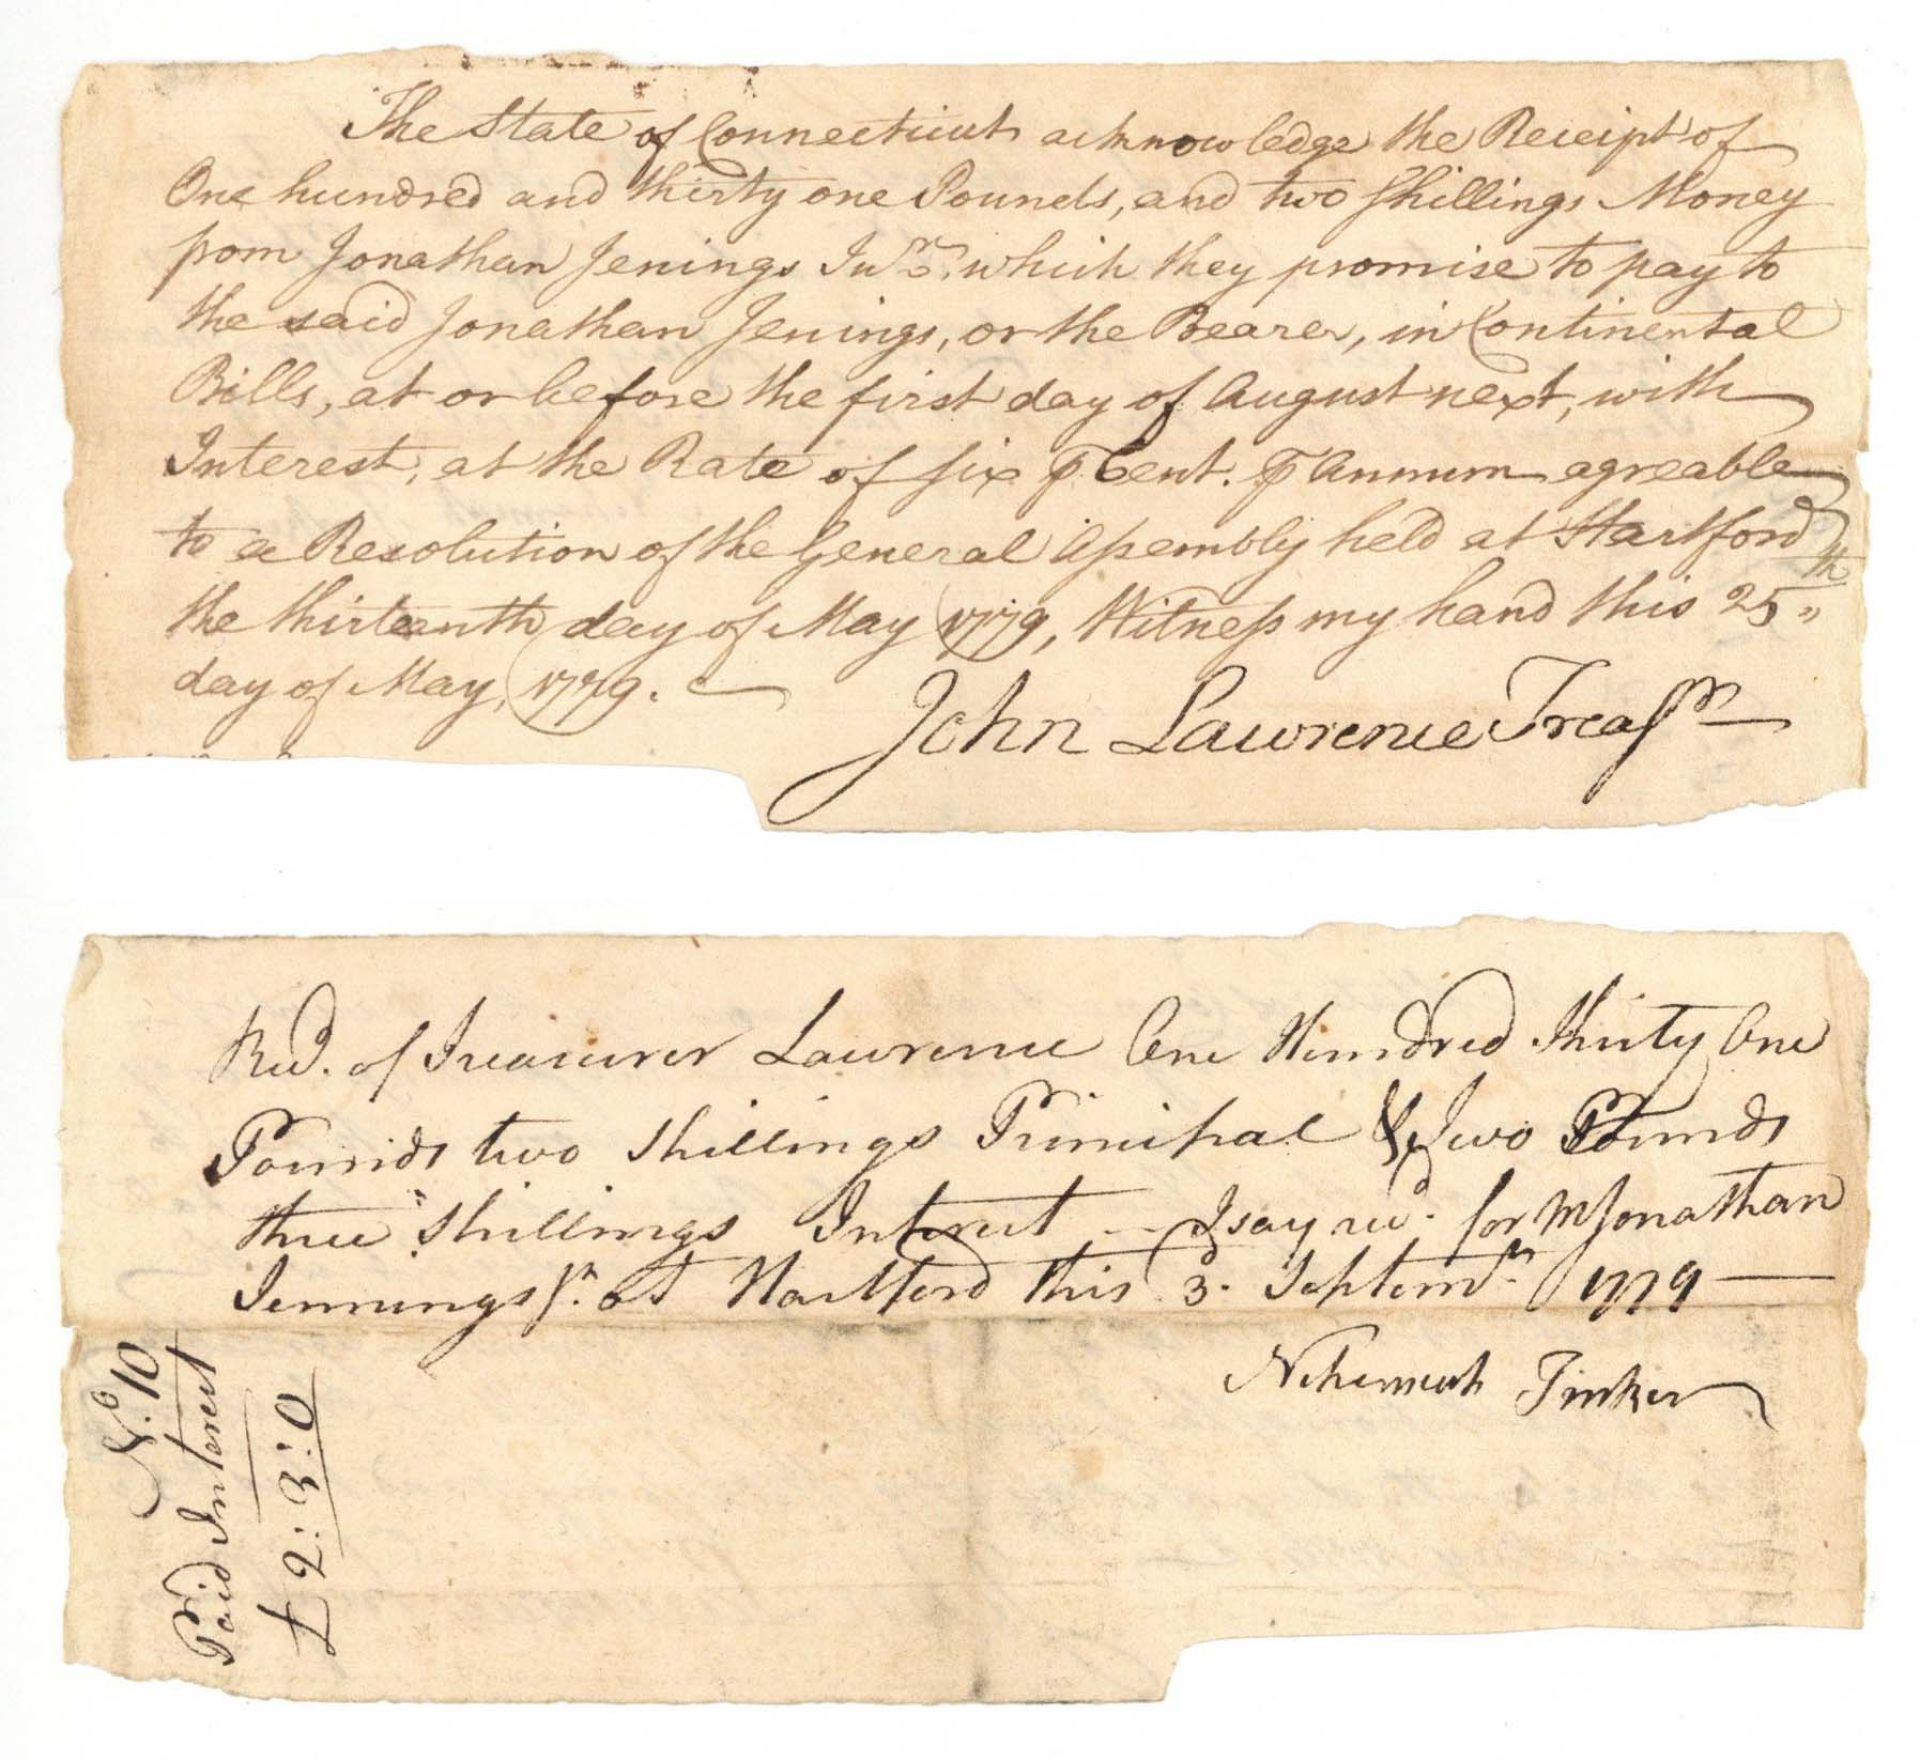 The State of Connecticut acknowledge the Receipt of
One hundred and thirty one Pounds, and two Shillings Money
from Jonathan Jenings Junr. which they promise to pay to
the said Jonathan Jenings, or the Bearer, in Continental
Bills, at or before the first day of August next, with
Interest, at the Rate of six ⅌ Cent. ⅌ Annum agreable
to a Resolution of the General Assembly held at Hartford
the thirteenth day of May 1779, Witness my hand this 25th
day of May, 1779.
John Lawrence Treasr
Recd. of Treasurer Lawrence One Hundred Thirty One
Pounds two Shillings Principal & Two Pounds
three Shillings Interest -- I say recd. for Mr Jonathan
Jennings Jr. at Hartford this 3. Septemr 1779
Nehemiah Tinker
No. 10
Paid Interest
£2:3:0